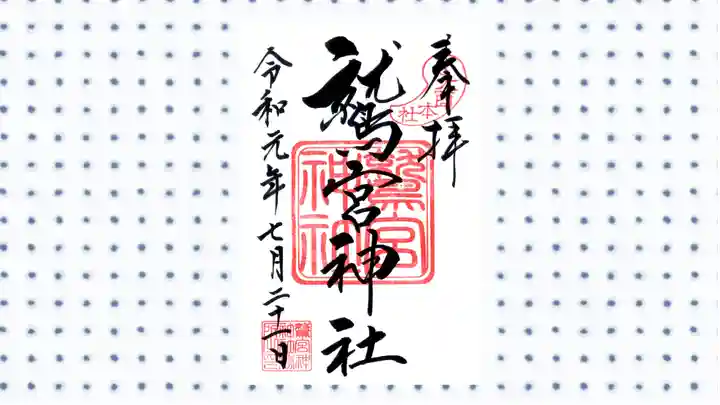 奉拝
鷲宮神社
令和元年七月二十一日
鷲宮
神社
本社